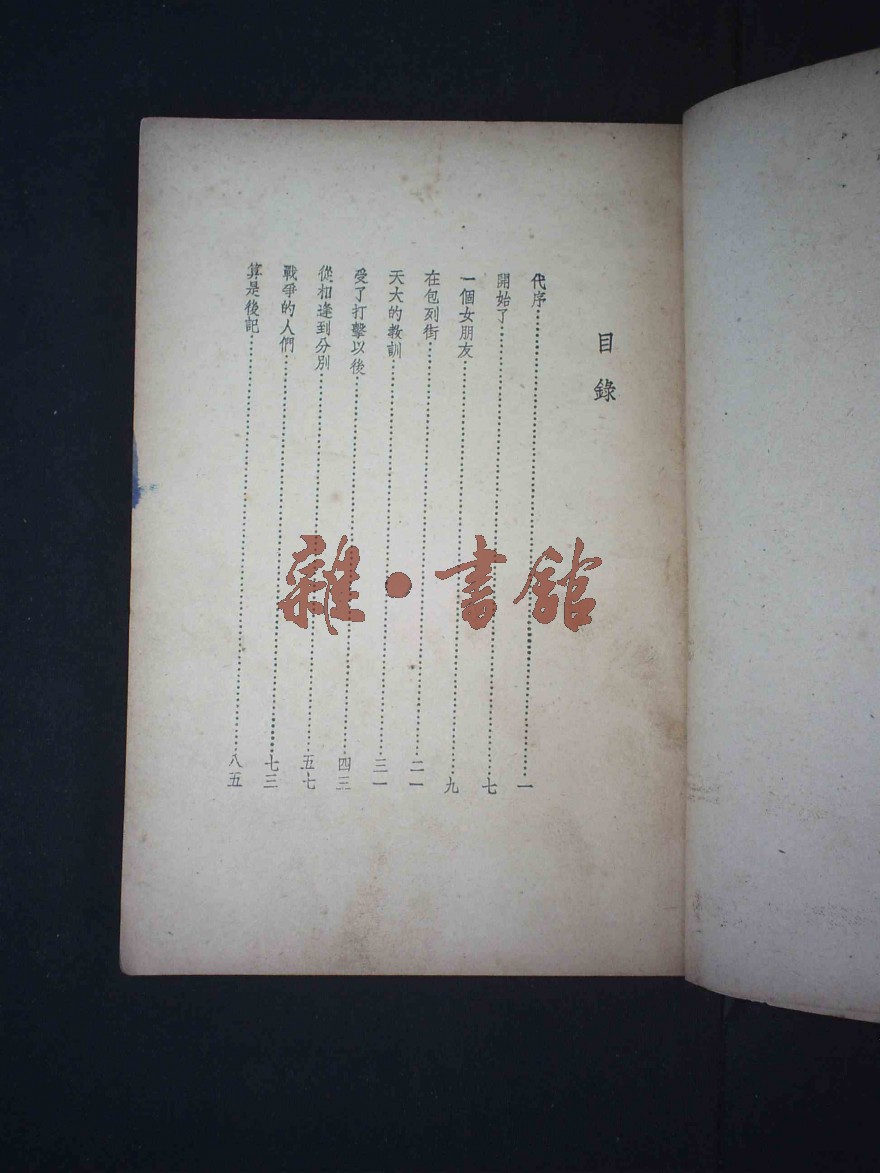 目錄
代序……一
開始了……七
一個女朋友……九
在包列街……二一
天大的教訓……三一
受了打擊以後……四三
從相逢到分別……五七
戰爭的人們……七三
算是後記……八五
雜·書館